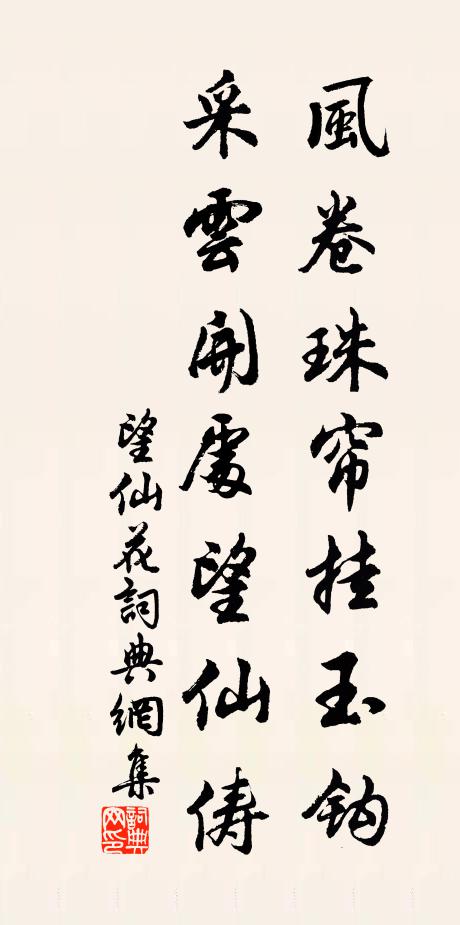 風卷珠帘挂玉鈎
采雲開處望仙儔
望仙花詞典網集
詞典
网印